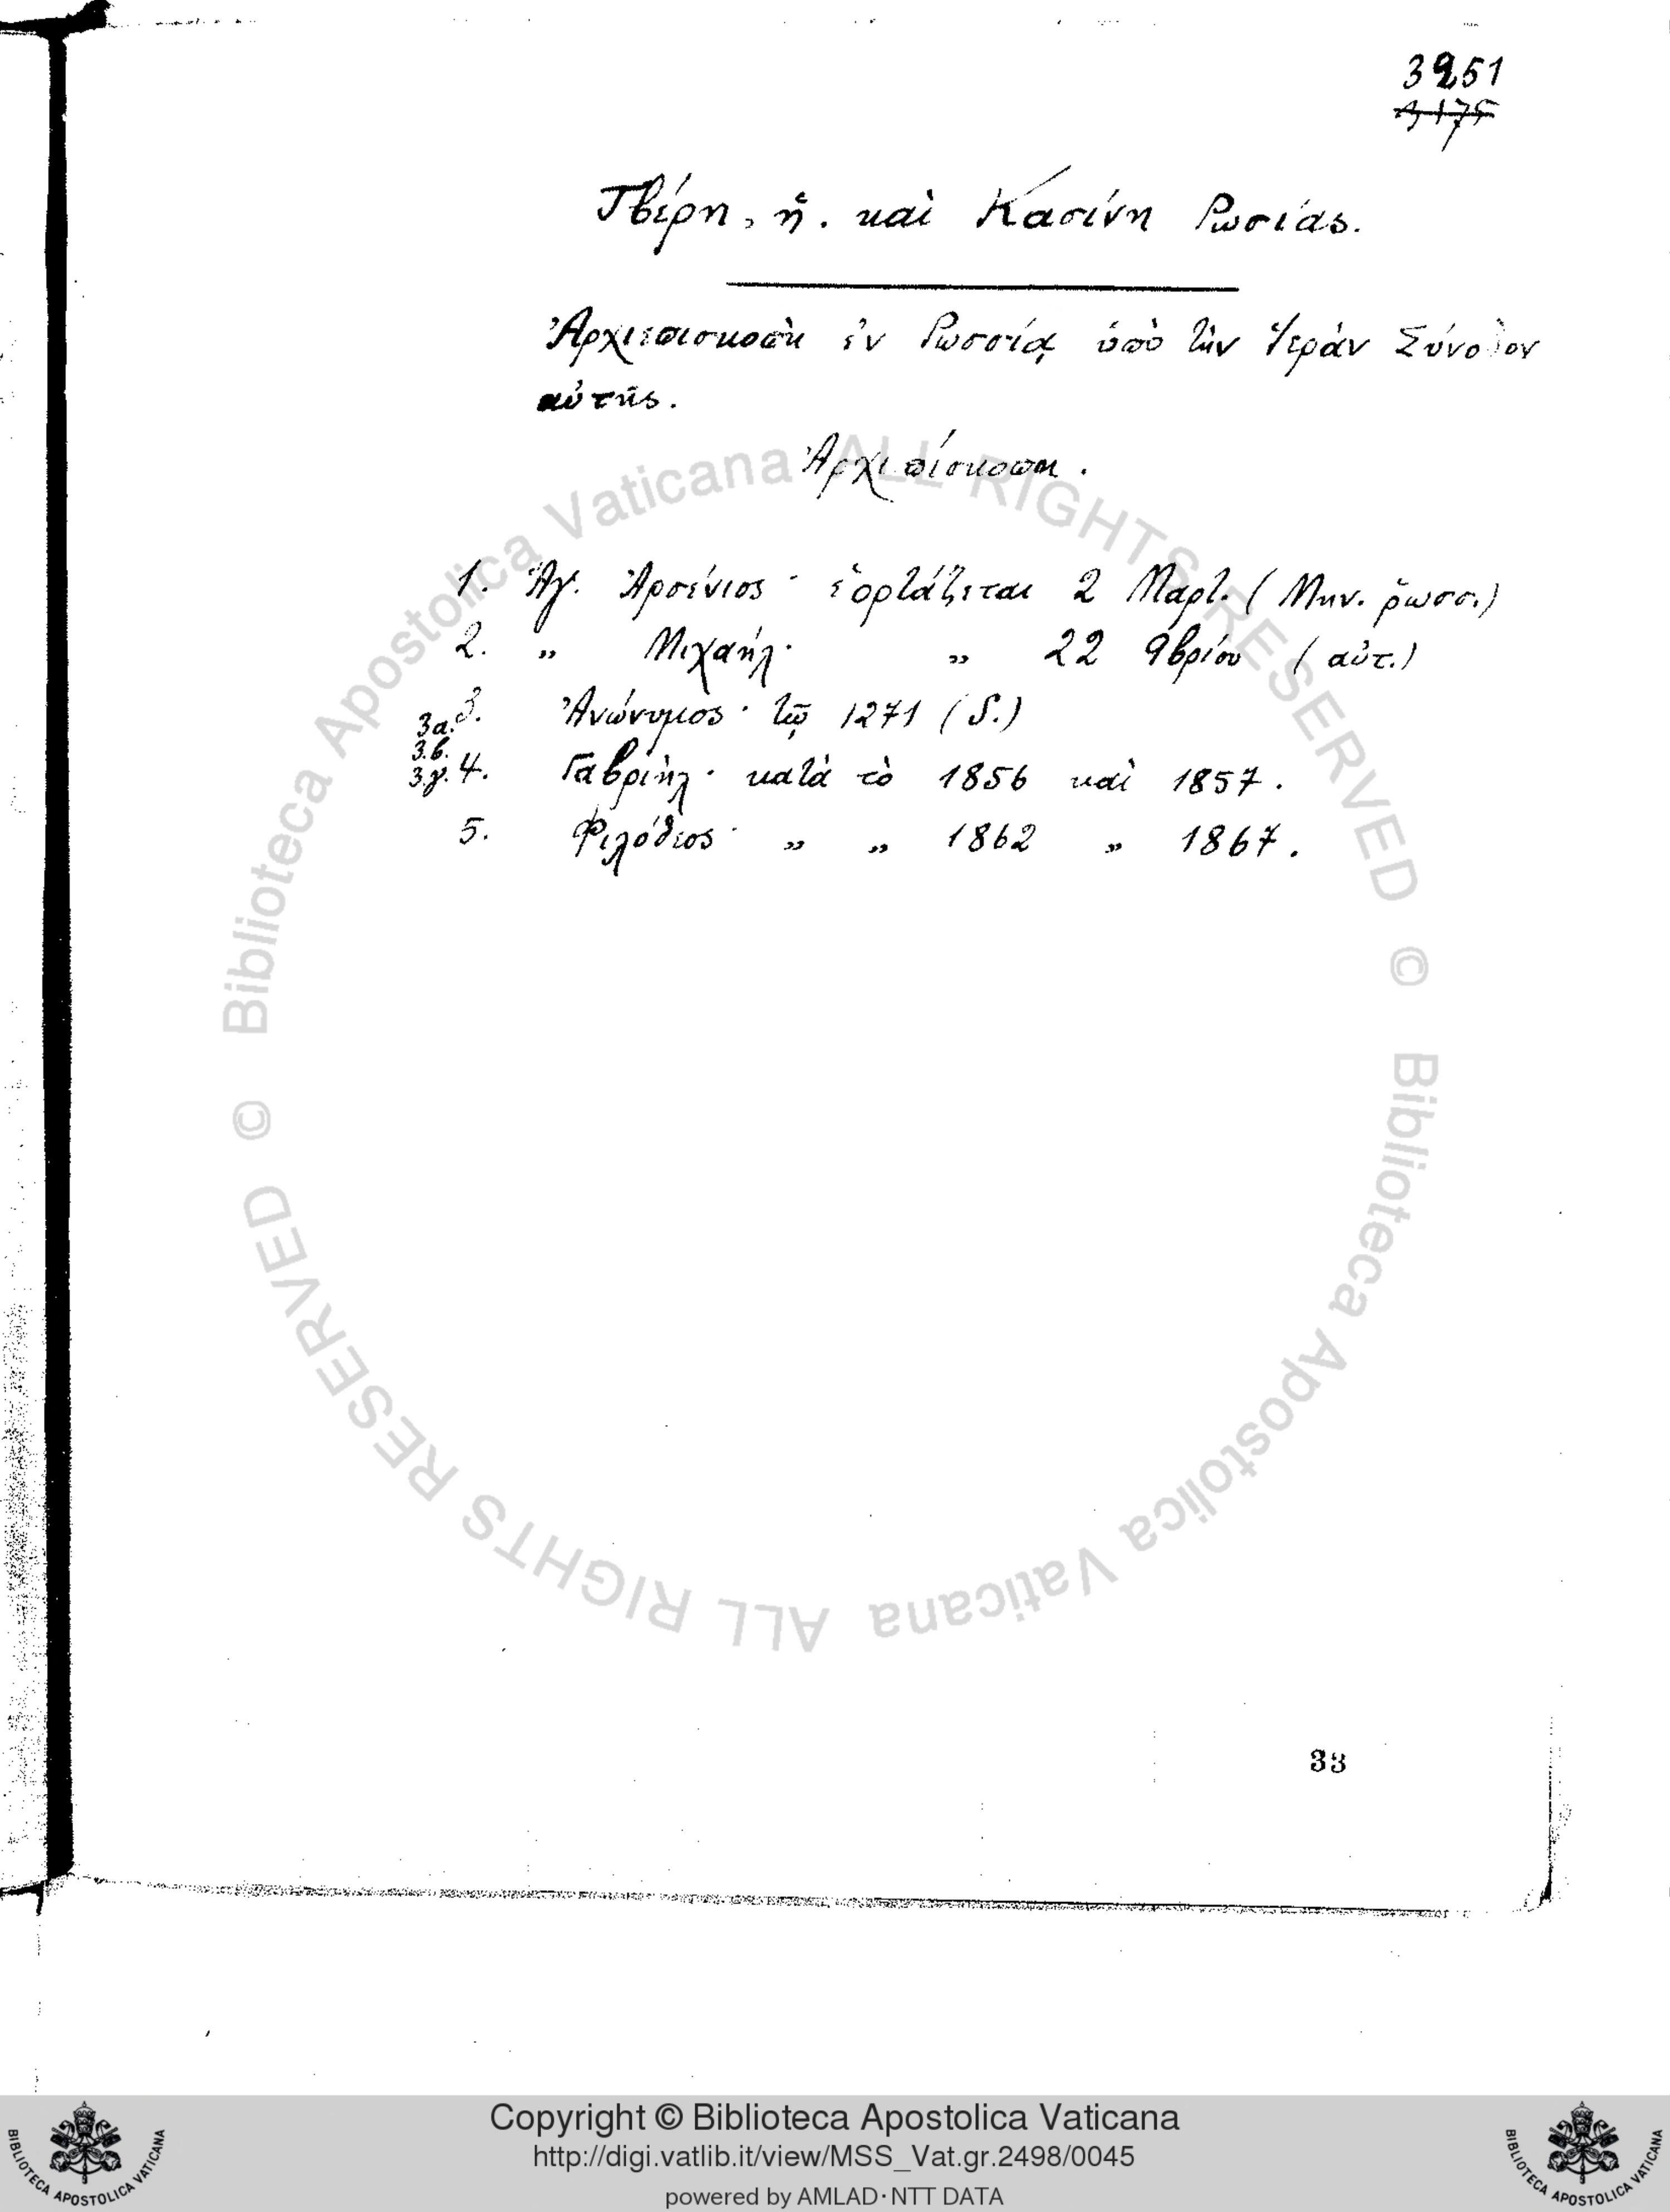 3251
3175
Τβέρη, ἢ. καὶ Κασίνη Ρωσίας.
Ἀρχιεπισκοπὴ ἐν Ρωσσίᾳ ὑπὸ τὴν Ἱερὰν Σύνοδον
αὐτῆς.
Ἀρχιεπίσκοποι.
1. Ἅγ. Ἀρσένιος· ἑορτάζεται 2 Μαρτ. (Μην. ῥωσσ.)
2. „ Μιχαήλ· „ 22 9βρίου (αὐτ.)
3. Ἀνώνυμος· τῷ 1271 (S.)
3α.
3.β.
3.γ. 4. Γαβριὴλ· κατὰ τὸ 1856 καὶ 1857.
5. Φιλόθεος· „ „ 1862 „ 1867.
33
© Biblioteca Apostolica Vaticana ALL RIGHTS RESERVED
© Biblioteca Apostolica Vaticana ALL RIGHTS RESERVED
Copyright © Biblioteca Apostolica Vaticana
http://digi.vatlib.it/view/MSS_Vat.gr.2498/0045
powered by AMLAD·NTT DATA
BIBLIOTECA APOSTOLICA VATICANA
BIBLIOTECA APOSTOLICA VATICANA